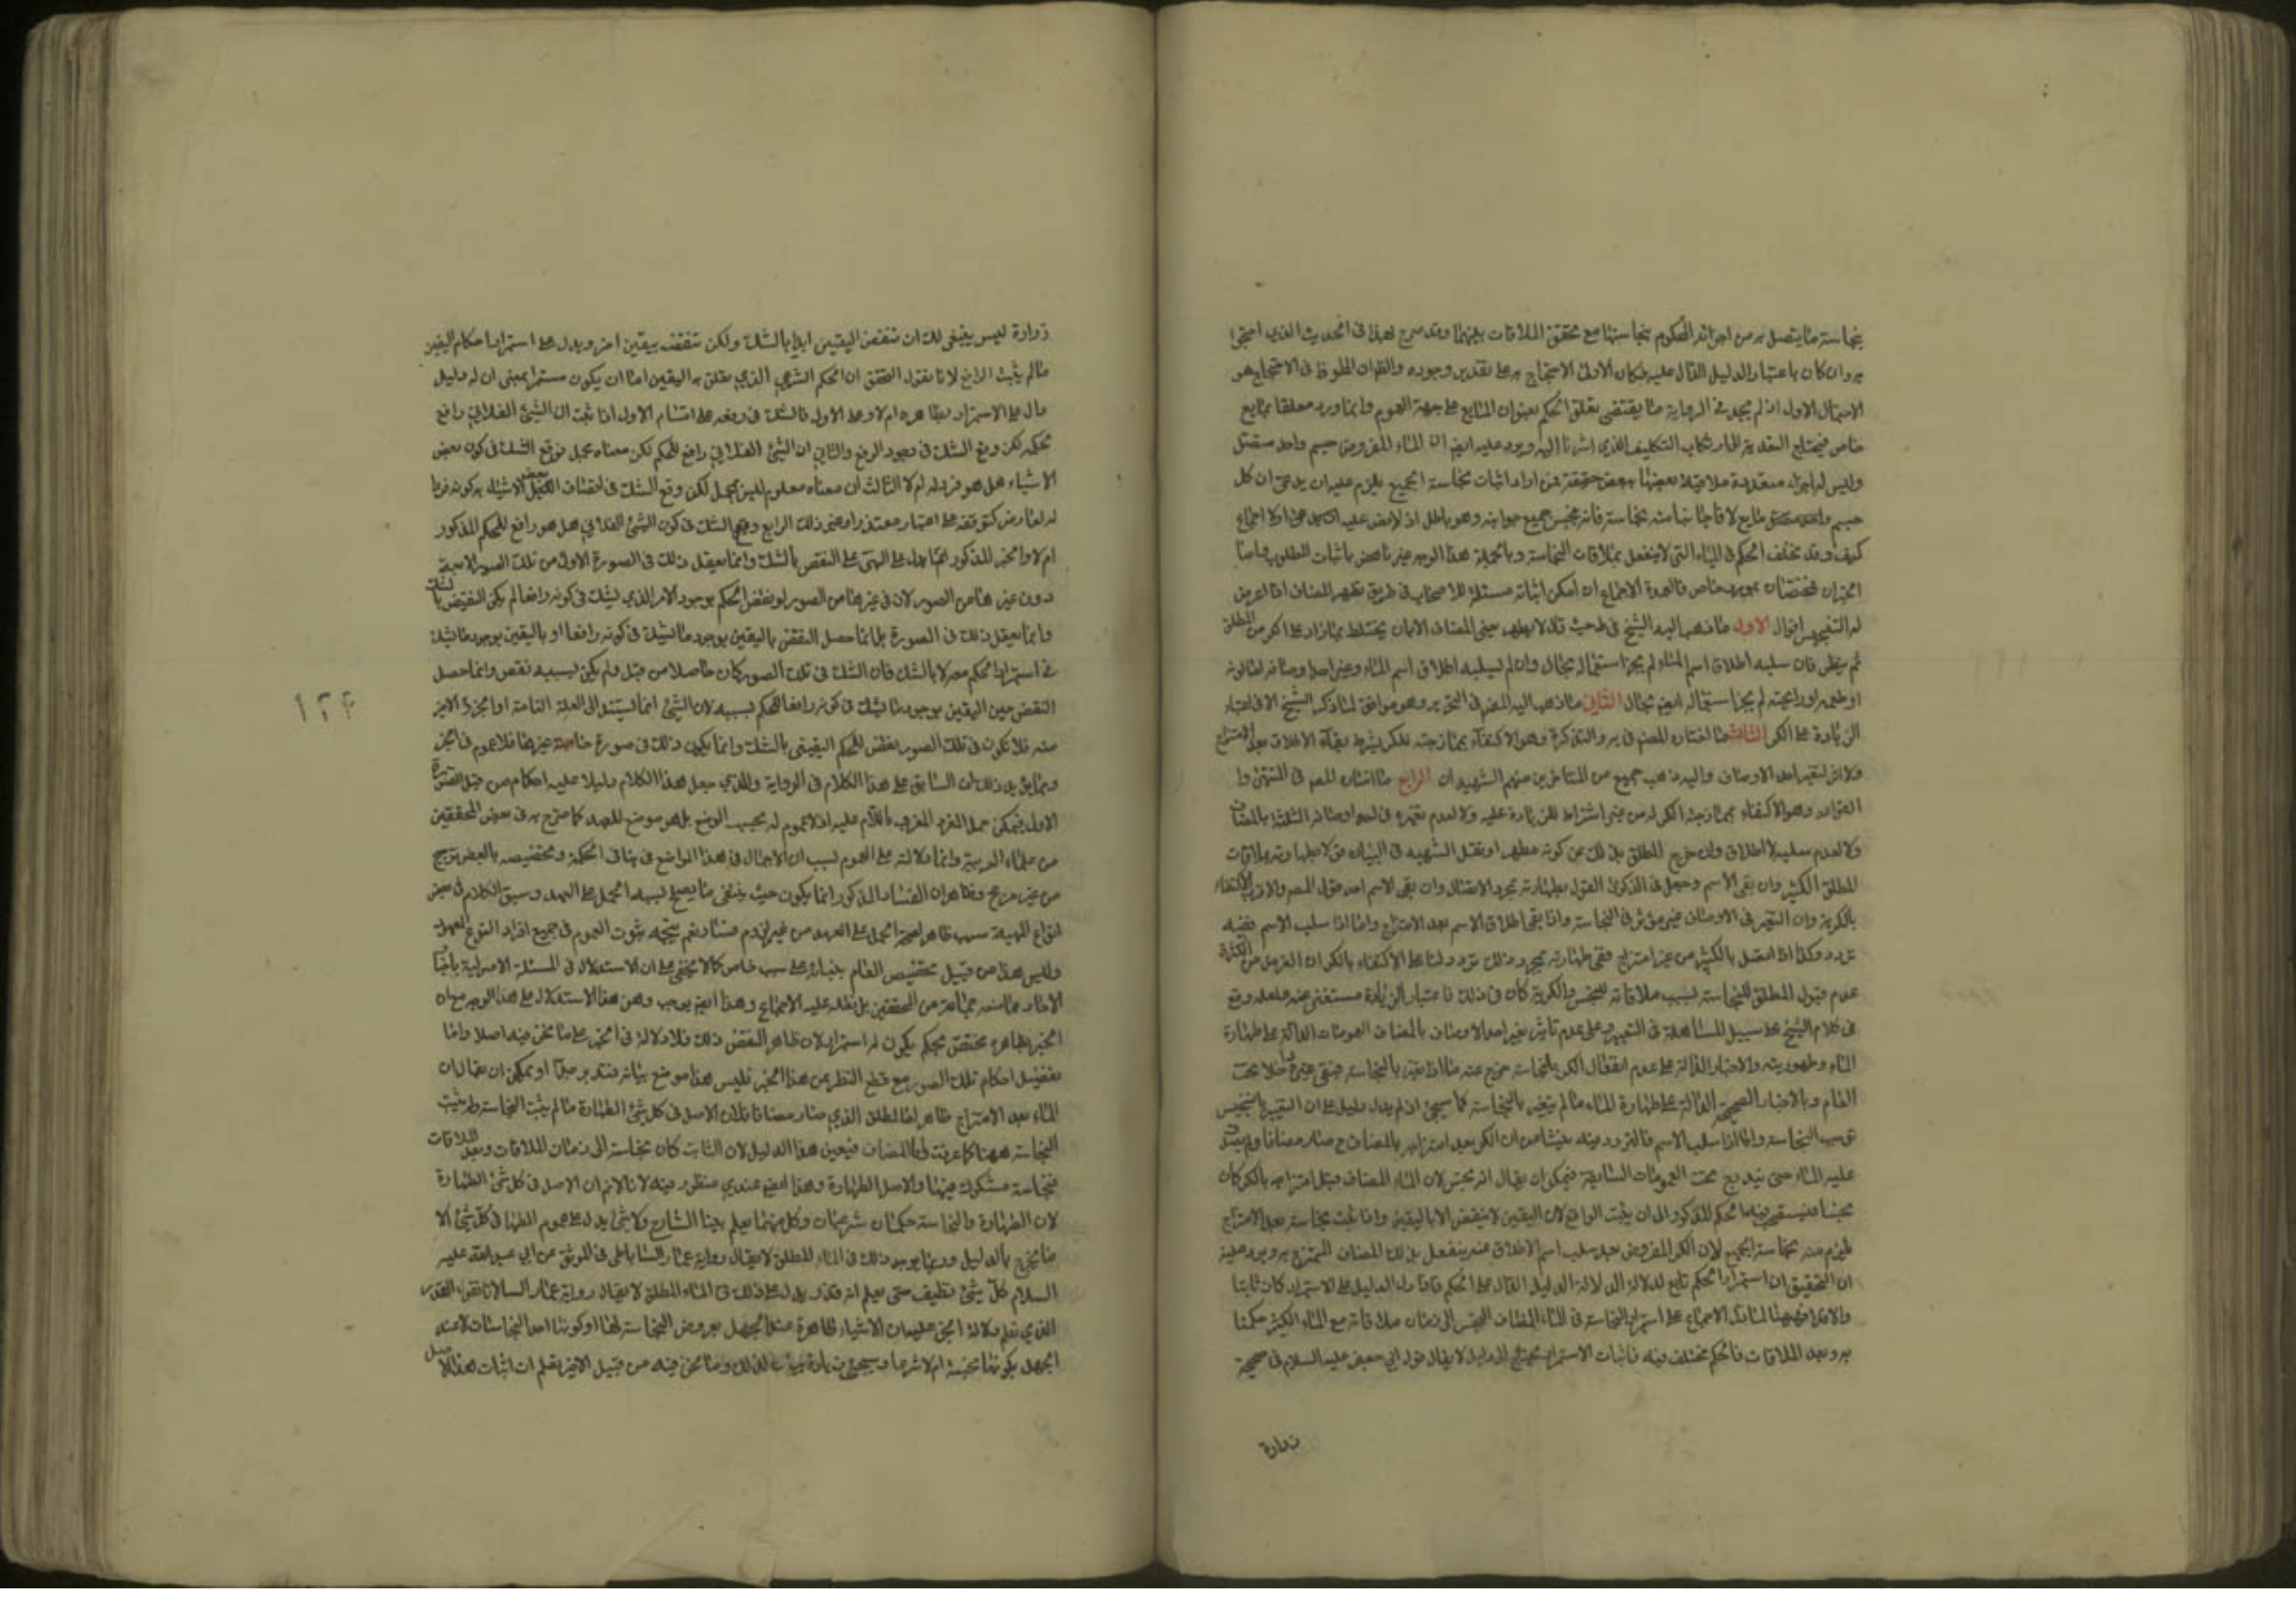 بنجاسة ما يتصل به من اجزائه المحكوم بنجاستها مع تحقق الملاقات بينهما وقد صرح بهذا فى الحديث الذي احتجوا
به وان كان باعتبار الدليل الدال عليه فكان الاولى الاحتجاج به على تقدير وجوده والظاهر ان الملحوظ فى الاحتجاج هو
الاحتمال الاول اذ لم نجد فى الرواية ما يقتضى تعلق الحكم بعنوان المايع على جهة العموم وانما ورد معلقا بمايع
خاص فيحتاج التعدية الى ارتكاب التكليف الذي اشرنا اليه ويرد عليه ايضا ان الماء المفروض جسم واحد متصل
وليس له اجزاء متعددة ملاقية بعضها بعض حقيقة فمن اراد اثبات نجاسة الجميع يلزم عليه ان يدعى ان كل
جسم واحد متصل مايع لاقا جانبا منه نجاسة فانه ينجس جميع جوانبه وهو باطل اذ لا نص عليه كلا ولا اجماع
كيف وقد تخلف الحكم فى المياه التى لا ينفعل بملاقات النجاسة وبالجملة هذا الوجه غير ناهض باثبات المطلوب واما
الخبران فمختصان بمورد خاص فالعمدة الاجماع ان امكن اثباته مسئلة للاصحاب فى طريق تطهير المضاف اذا عرض
له التنجيس اقوال الاول ما ذهب اليه الشيخ فى ط حيث قال لا يطهر يعنى المضاف الا بان يختلط بما زاد على الكر من المطلق
ثم ينظر فان سلبه اطلاق اسم الماء لم يجز استعماله بحال وان لم يسلبه اطلاق اسم الماء وغير احد اوصافه اما لونه
او طعمه او رائحته لم يجز استعماله ايضا بحال الثانى ما ذهب اليه المصنف فى التحرير وهو موافق لما ذكره الشيخ الا فى اعتبار
الزيادة على الكر الثالث ما اختاره المصنف فى ير والتذكرة وهو الاكتفاء بممازجته للكر بشرط بقاء الاطلاق بعد الامتزاج
ولا اثر لتغير احد الاوصاف واليه ذهب جميع من المتاخرين منهم الشهيدان الرابع ما اختاره المصنف فى المنتهى وا
القواعد وهو الاكتفاء بممازجة الكر له من غير اشتراط للزيادة عليه ولا لعدم تغيره فى احد اوصافه الثلثة بالمضاف
ولا لعدم سلبه الاطلاق وان خرج المطلق بذلك عن كونه مطهرا ونقل الشهيد فى البيان قولا بطهارته بملاقات
المطلق الكثير وان بقى الاسم وجعل فى الذكرى القول بطهارته بمجرد الاتصال وان بقى الاسم احد قول المصنف والاقرب الاكتفاء
بالكرية وان التغير فى الاوصاف غير مؤثر فى النجاسة واذا بقى اطلاق الاسم بعد الامتزاج واما اذا سلب الاسم ففيه
تردد وكذا اذا اتصل بالكثير من غير امتزاج ففى طهارته بمجرد ذلك تردد لنا على الاكتفاء بالكر ان الغرض من الكثرة
عدم قبول المطلق للنجاسة بسبب ملاقاته للنجس والكرية كاف فى ذلك فاعتبار الزيادة مستغنى عنه ولعله وقع
فى كلام الشيخ على سبيل المساهلة فى التعبير وعلى عدم تاثير تغير احد الاوصاف بالمضاف العمومات الدالة على طهارة
الماء وطهوريته والاخبار الدالة على عدم انفعال الكر بالنجاسة خرج عنه ما اذا تغير بالنجاسة فبقى غيره داخلا تحت
العام وبالاخبار الصحيحة الدالة على طهارة الماء ما لم يتغير بالنجاسة كما سيجئ اذ لم يدل دليل على ان التغير بالنجس
يوجب النجاسة واما اذا سلب الاسم فالتردد فيه ينشا من ان الكر بعد امتزاجه بالمضاف ح صار مضافا ولم يصدق
عليه الماء حتى يندرج تحت العمومات السابقة فيمكن ان يقال انه نجس لان الماء المضاف قبل امتزاجه بالكر كان
نجسا فيستصحب فيه الحكم المذكور الى ان يثبت الرافع لان اليقين لا ينقض الا باليقين واذا ثبت نجاسة بعد الامتزاج
يلزم منه نجاسة الجميع لان الكر المفروض بعد سلب اسم الاطلاق عنه ينفعل بذلك المضاف الممتزج به ويرد عليه
ان التحقيق ان استمرار الحكم تابع لدلالة الدليل الدال على الحكم فاذا دل الدليل على الاستمرار كان ثابتا
والا فلا فههنا لما دل الاجماع على استمرار النجاسة فى الماء المضاف النجس الى زمان ملاقاته مع الماء الكثير حكمنا
به وبعد الملاقات فالحكم مختلف فيه فاثبات الاستمرار يحتاج الى دليل لا يقال قول ابي جعفر عليه السلام فى صحيحة
زرارة
زرارة ليس ينبغى لك ان تنقض اليقين ابدا بالشك ولكن تنقضه بيقين اخر ويدل على استمرار احكام اليقين
ما لم يثبت الرافع لانا نقول التحقق ان الحكم الشرعي الذي تعلق به اليقين اما ان يكون مستمرا بمعنى ان له دليل
دال على الاستمرار بظاهره ام لا وعلى الاول فالشك فى رفعه على اقسام الاول اذا ثبت ان الشيئ الفلاني رافع
لحكمه لكن وقع الشك فى وجود الرافع والثاني ان الشيئ الفلاني رافع للحكم لكن معناه مجمل فوقع الشك فى كون بعض
الاشياء هل هو فرد له ام لا الثالث ان معناه معلوم ليس بمجمل لكن وقع الشك فى اتصاف بعض الاشياء به كونه فردا
له لعارض كتوقفه على اعتبار متعذر او غير ذلك الرابع وقع الشك فى كون الشيئ الفلاني هل هو رافع للحكم المذكور
ام لا والخبر المذكور انما يدل على النهى على النقض بالشك وانما يعقل ذلك فى الصورة الاولى من تلك الصور الاربعة
دون غيرها من الصور لان فى غيرها من الصور لو نقض الحكم بوجود الامر الذي يشك فى كونه رافعا لم يكن النقيض بالشك
وانما يعقل ذلك فى الصورة بل انما حصل النقض باليقين بوجود ما يشك فى كونه رافعا او باليقين بوجود ما يشك
فى استمرار الحكم معه لا بالشك فان الشك فى تلك الصور كان حاصلا من قبل ولم يكن بسببه نقض وانما حصل
النقض حين اليقين بوجود ما يشك فى كونه رافعا للحكم بسببه لان الشيئ انما يستند الى العلة التامة او الجزء الاخير
١٢٤
منه فلا تكون فى تلك الصور نقض للحكم اليقينى بالشك وانما يكون ذلك فى صورة خاصة غيرها فلا عموم فى الخبر
ومما يؤيد ذلك ان السابق على هذا الكلام فى الرواية والذي جعل هذا الكلام دليلا عليه احكام من قبل الصورة
الاولى فيمكن حمل الفرد المعرف باللام عليه اذ لا عموم له بحسب الوضع بل هو موضع للعهد كما صرح به فى بعض المحققين
من علماء العربية وانما دلالته على العموم بسبب ان الاجمال فى هذا الواضع فى ينافى الحكمة وتخصيصه بالبعض ترجيح
من غير مرجح وظاهر ان الفساد المذكور انما يكون حيث ينتفى ما يصلح بسببه الحمل على العهد وسبق الكلام فى بعض
انواع المهية سبب ظاهر لصحة الحمل على العهد من غير لزوم فساد نعم يتجه ثبوت العموم فى جميع افراد النوع المعهود
وليس هذا من قبيل تخصيص العام ببنائه على سبب خاص كما لا يخفى على ان الاستدلال فى المسئلة الاصولية باخبار
الاحاد مما منعه جماعة من المحققين بل نقله عليه الاجماع وهذا ايضا يوجب وهن هذا الاستدلال على هذا الوجه مع ان
الخبر بظاهره مختص بحكم يكون له استمرار لان ظاهر النقض ذلك فلا دلالة فى الخبر على ما نحن فيه اصلا واما
تفصيل احكام تلك الصور مع قطع النظر عن هذا الخبر فليس هذا موضع بيانه فتدبر جدا او يمكن ان يقال ان
الماء بعد الامتزاج طاهر اما المطلق الذي صار مضافا فلان الاصل فى كل شئ الطهارة ما لم يثبت النجاسة ولم يثبت
النجاسة ههنا كما عرفت واما المضاف فبعين هذا الدليل لان الثابت كان نجاسة الى زمان الملاقات وبعد الملاقات
فنجاسة مشكوك فيها والاصل الطهارة وهذا ايضا عندي منظور فيه لانا لا نم ان الاصل فى كل شئ الطهارة
لان الطهارة والنجاسة حكمان شرعيان وكل منهما يعلم ببينا الشارع ولا شئ يدل على عموم الطهارة فى كل شئ الا
ما يخرج بالدليل وربما يوجد ذلك فى الماء المطلق لا يقال رواية عمار الساباطى فى الموثق عن ابي عبد الله عليه
السلام كل شئ نظيف حتى يعلم انه قذر يدل على ذلك فى الماء المطلق لا يقال رواية عمار السا لانا نقول القدر
الذي نعلم دلالة الخبر عليه ان الاشياء طاهرة عند الجهل بعروض النجاسة لها او كونها احد النجاسات لا عند
الجهل بكونها نجسة ام لا شرعا وسيجئ زيادة بيان لذلك وما نحن فيه من قبيل الاخير فعلم ان اثبات هذا الاصل